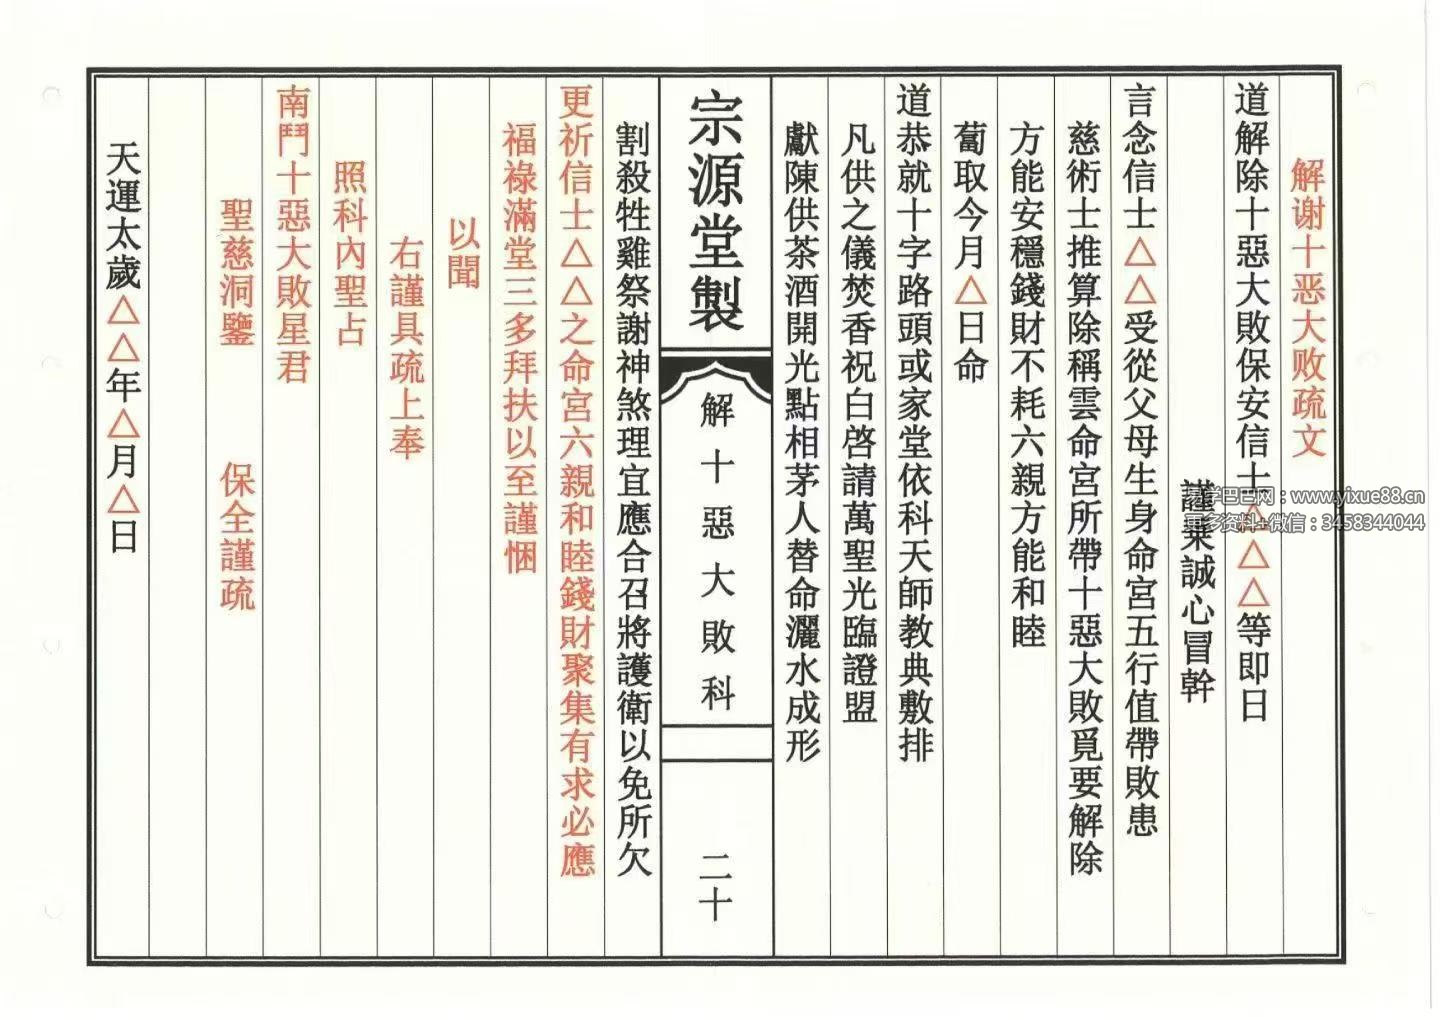 解谢十恶大败疏文
道解除十惡大敗保安信士△△△等即日
謹秉誠心冒幹
言念信士△△受從父母生身命宮五行值帶敗患
慈術士推算除稱雲命宮所帶十惡大敗覓要解除
方能安穩錢財不耗六親方能和睦
蔔取今月△日命
道恭就十字路頭或家堂依科天師教典敷排
凡供之儀焚香祝白啓請萬聖光臨證盟
獻陳供茶酒開光點相茅人替命灑水成形
宗源堂製
解十惡大敗科
二十
割殺牲雞祭謝神煞理宜應合召將護衛以免所欠
更祈信士△△之命宮六親和睦錢財聚集有求必應
福祿滿堂三多拜扶以至謹悃
以聞
右謹具疏上奉
照科內聖占
南鬥十惡大敗星君
聖慈洞鑒 保全謹疏
天運太歲△△年△月△日
易学巴巴网：www.yixue88.cn
更多资料+微信：3458344044